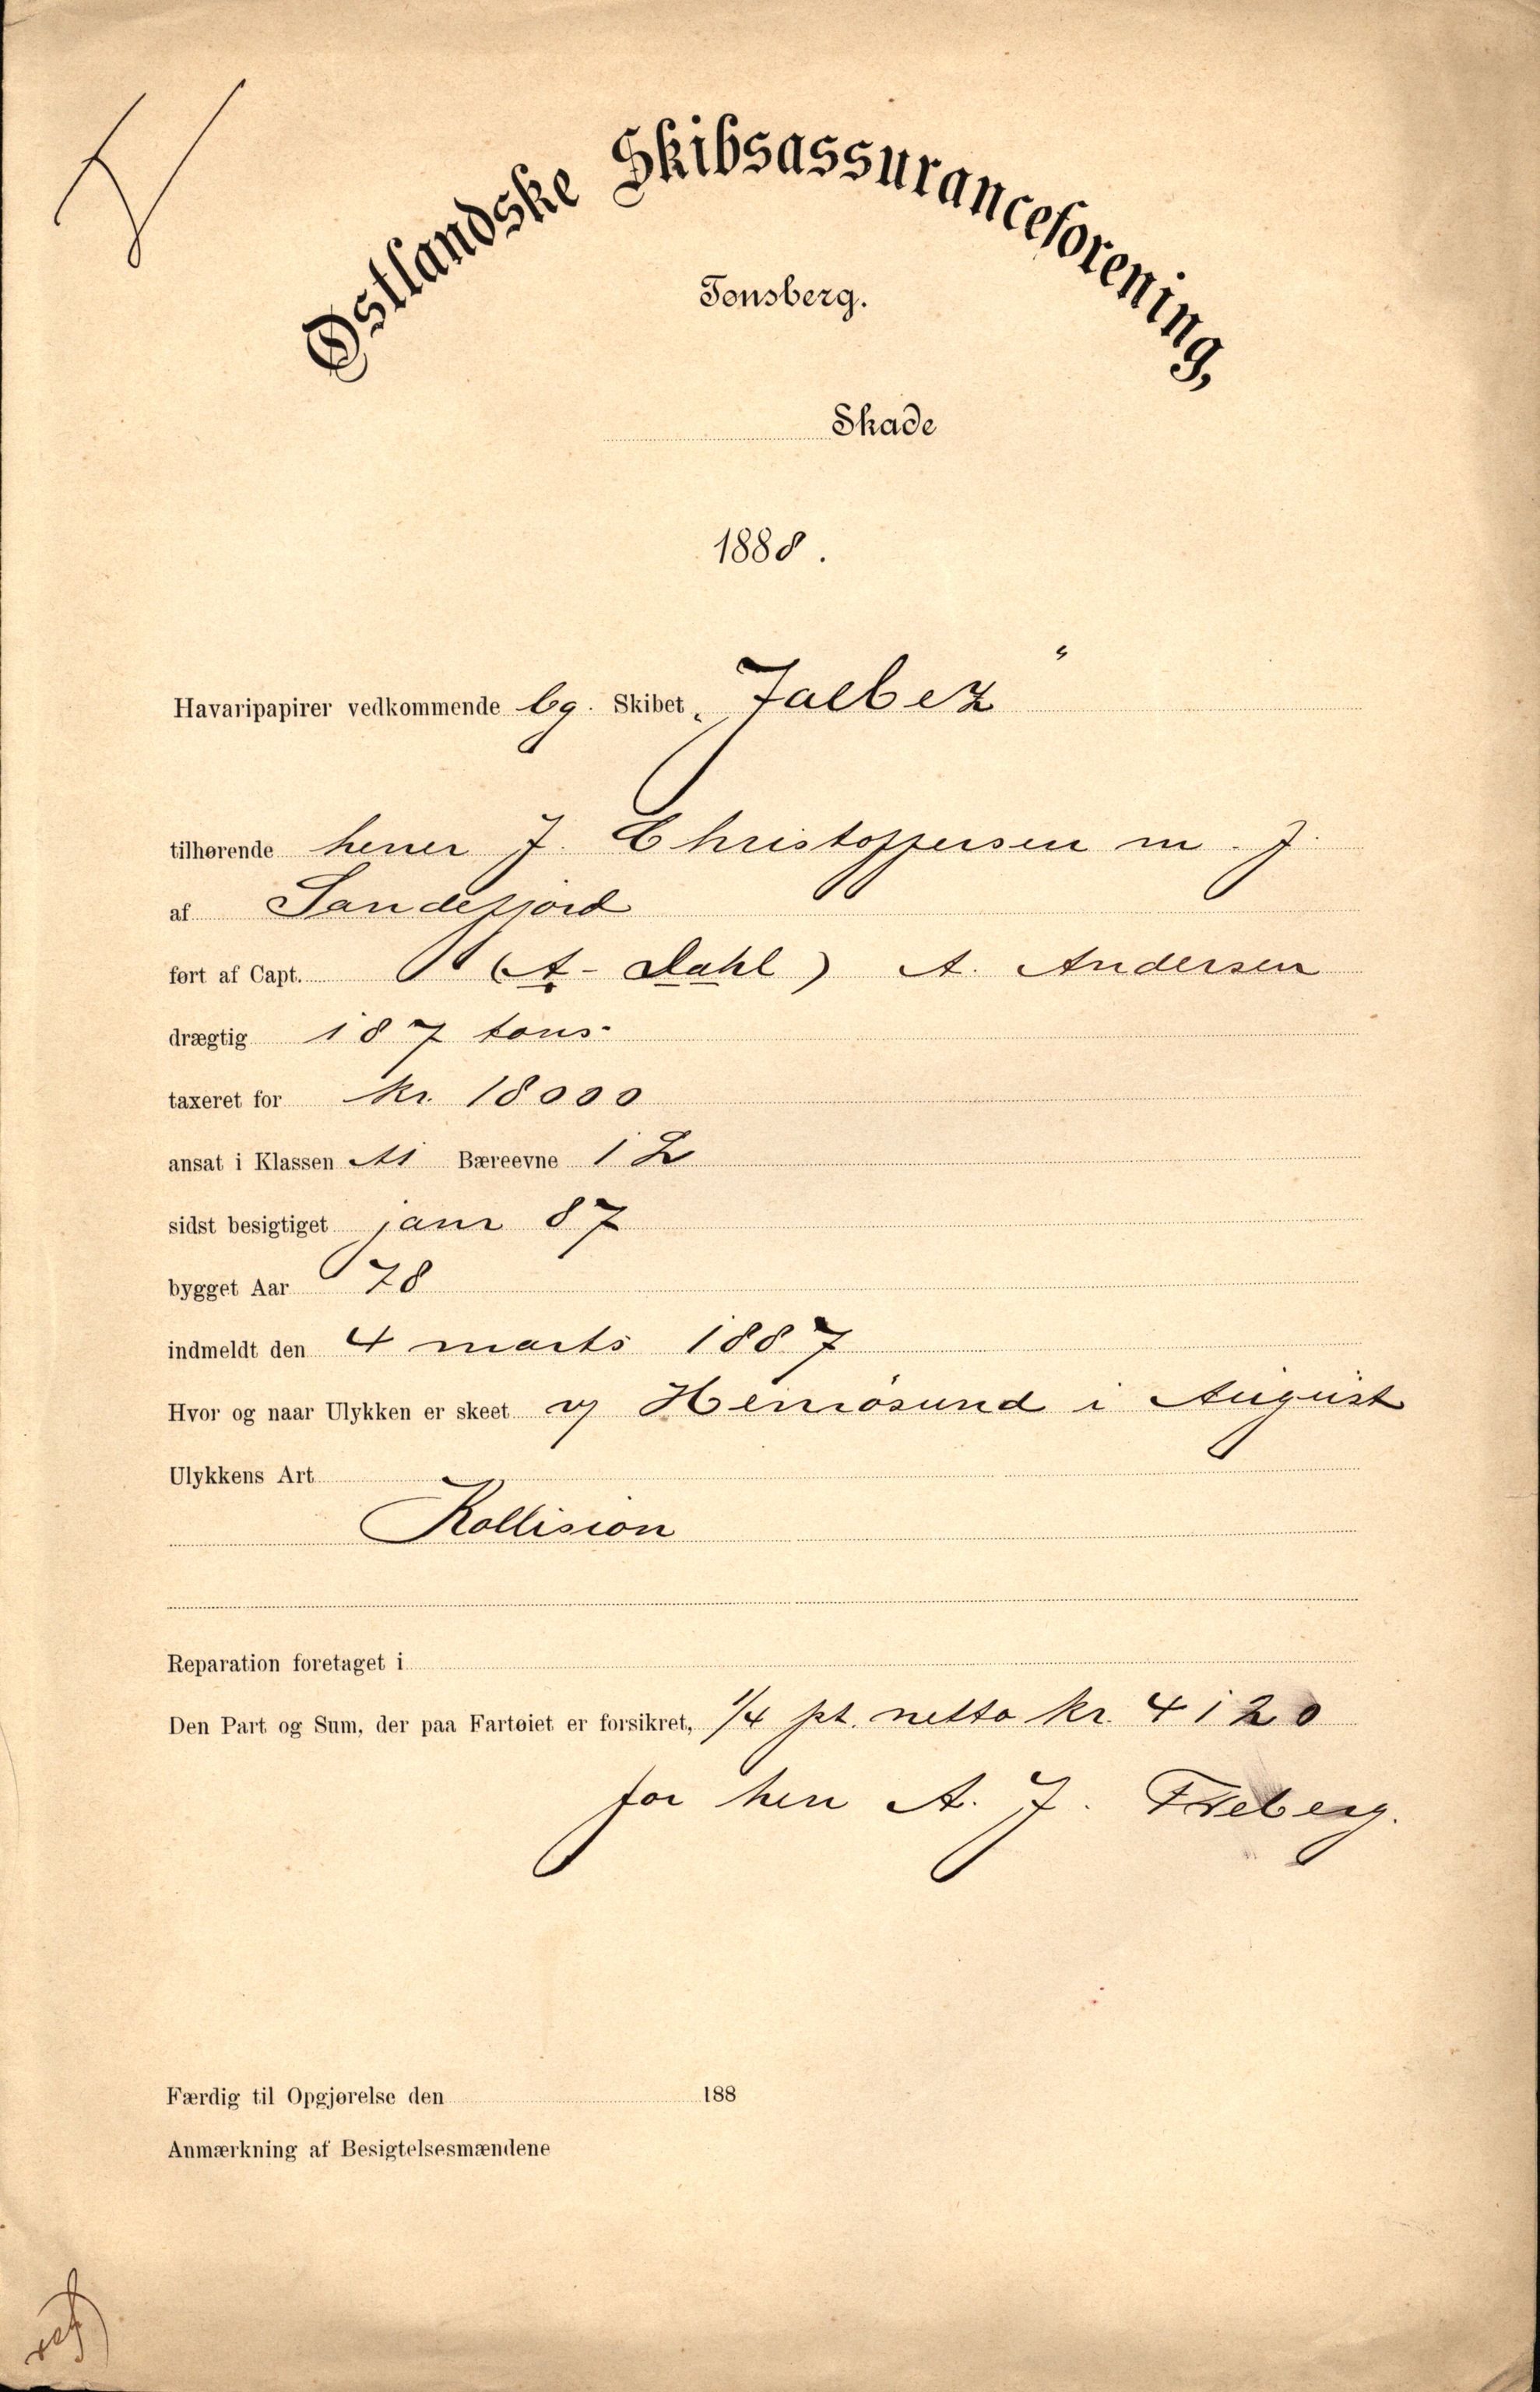 Østlandske Skibsassuranceforening,
Tønsberg.
Skade
1888.
Havaripapirer vedkommende bg. Skibet „Jaebez“
tilhørende herrer J. Christoffersen m. fl
af Sandefjord
ført af Capt. (A. Dahl) A. Andersen
drægtig 187 tons
taxeret for Kr. 18000
ansat i Klassen A1 Bæreevne 12
sidst besigtiget janr 87
bygget Aar 78
indmeldt den 4 marts 1887
Hvor og naar Ulykken er skeet v/ Hernösund i August
Ulykkens Art
Kollision
Reparation foretaget i
Den Part og Sum, der paa Fartøiet er forsikret, 1/4 pt. netto kr. 4120
for herr A. J. Freberg.
Færdig til Opgjørelse den 188
Anmærkning af Besigtelsesmændene